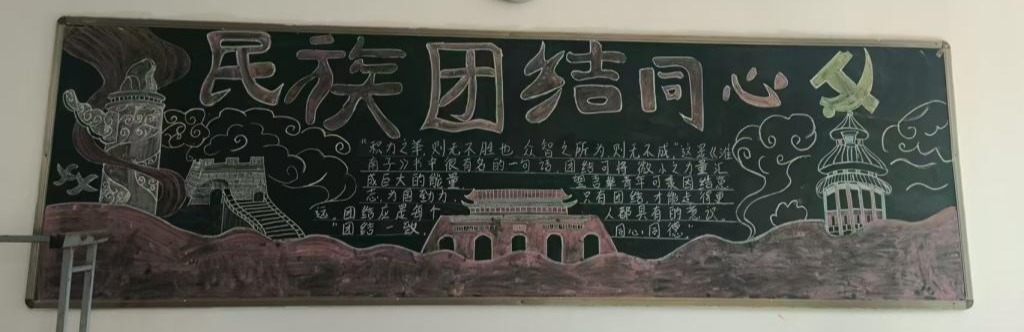 民族团结同心
"积力之举则无不胜也众智之所为则无不成"这是《淮
南子》书中很有名的一句话 团结可将微小之力量汇
成巨大的能量
只有团结才能走得更
远。团结应是每个人都具有的意识
"团结一致 同心同德"